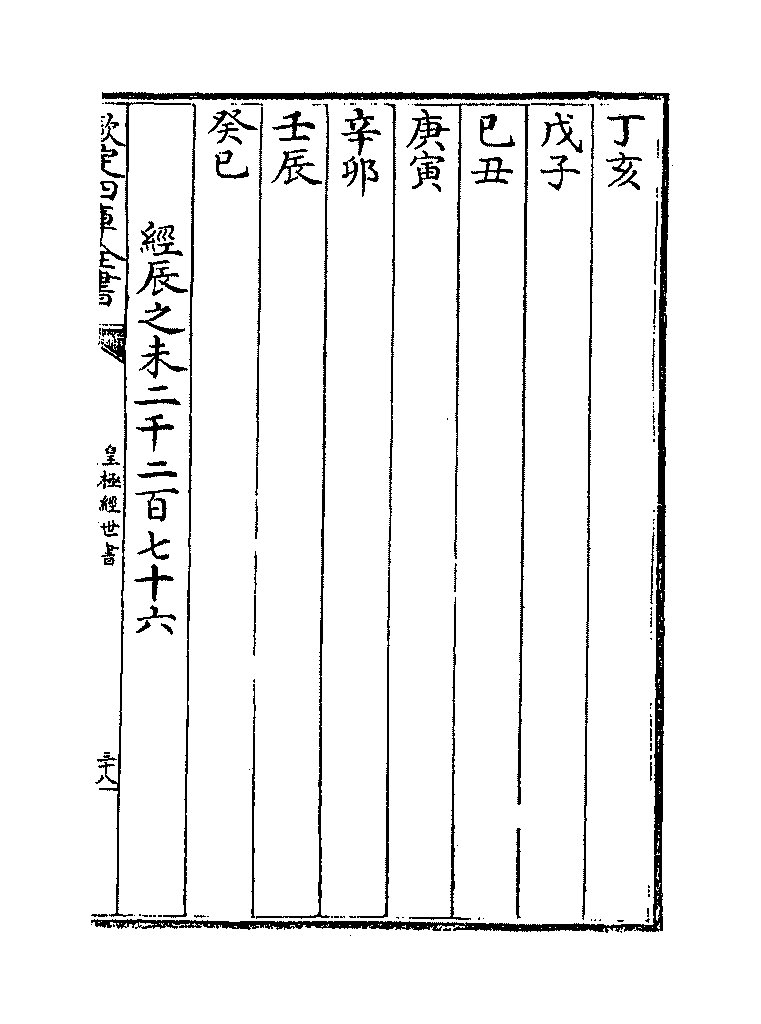 丁亥
戊子
已丑
庚寅
辛卯
壬辰
癸巳
經辰之未二千二百七十六
欽定四庫全書
皇極經世書
三十八